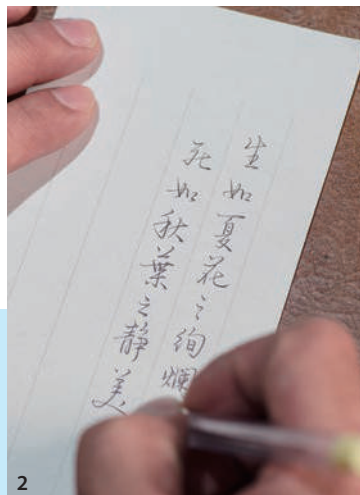 生如夏花之絢爛
死如秋葉之静美
2